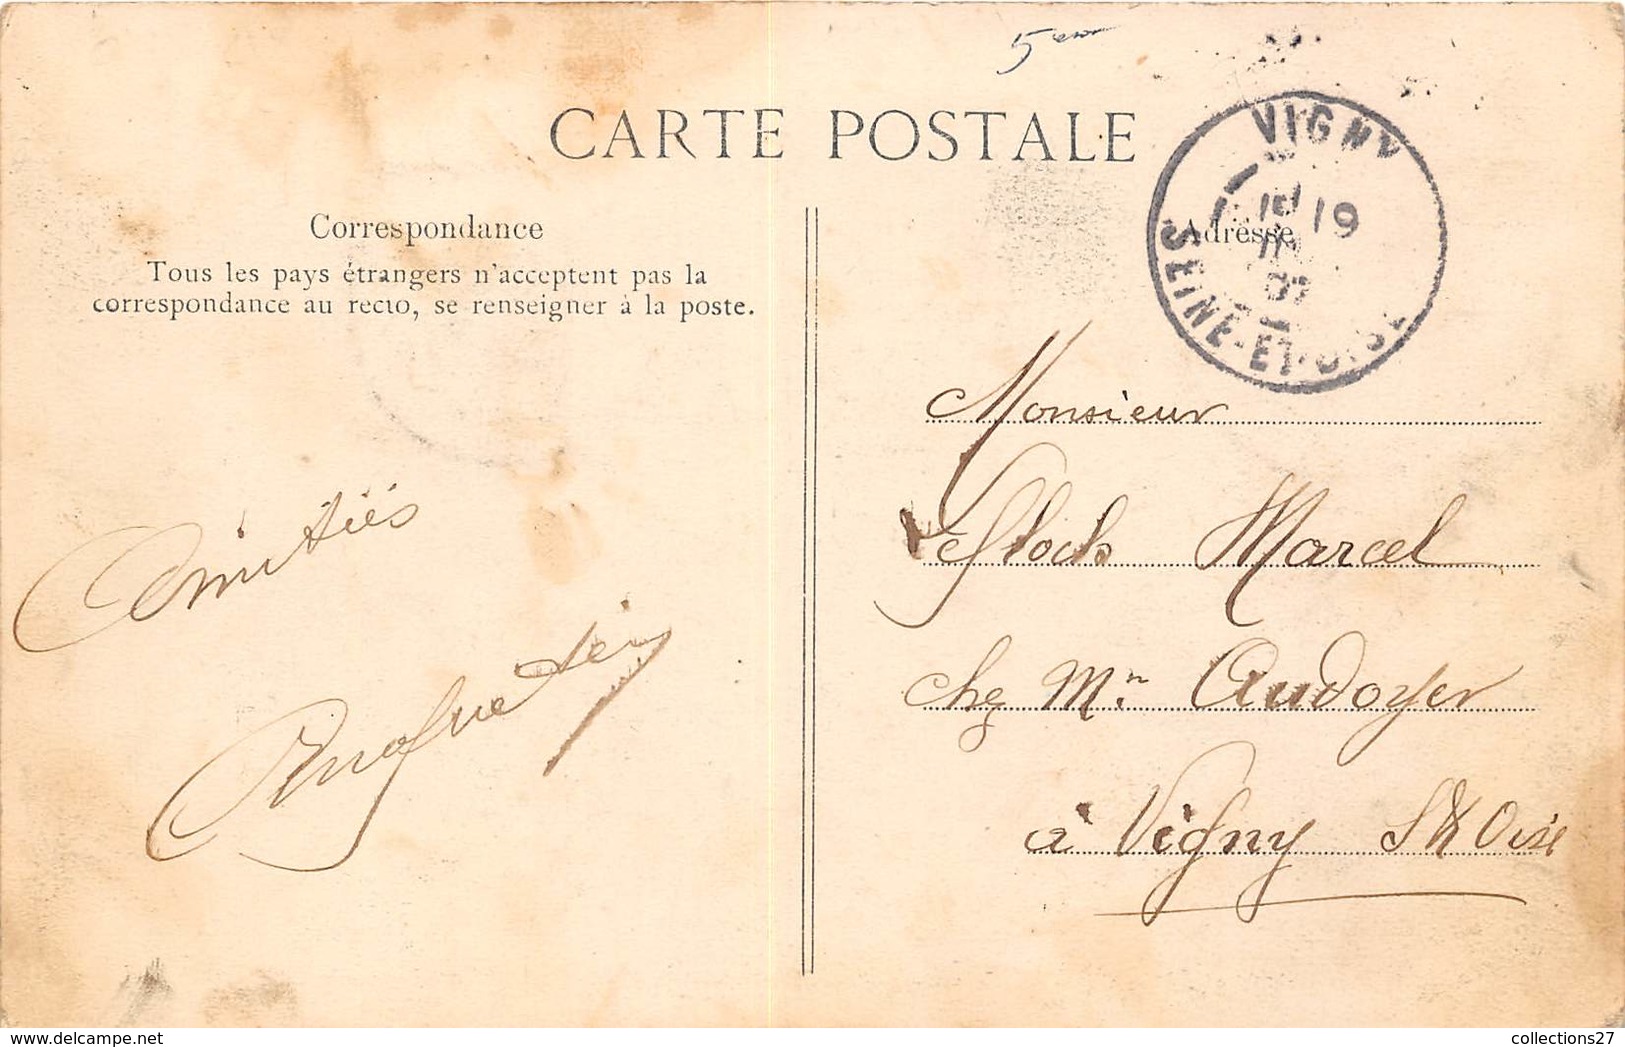 5
CARTE POSTALE
VIGNY
19
07
SEINE-ET-OISE
Correspondance
Adresse
Tous les pays étrangers n'acceptent pas la
correspondance au recto, se renseigner à la poste.
Amitiés
Monsieur
Flock Marcel
chez Mr. Audoyer
à Vigny S&Oise
collections27